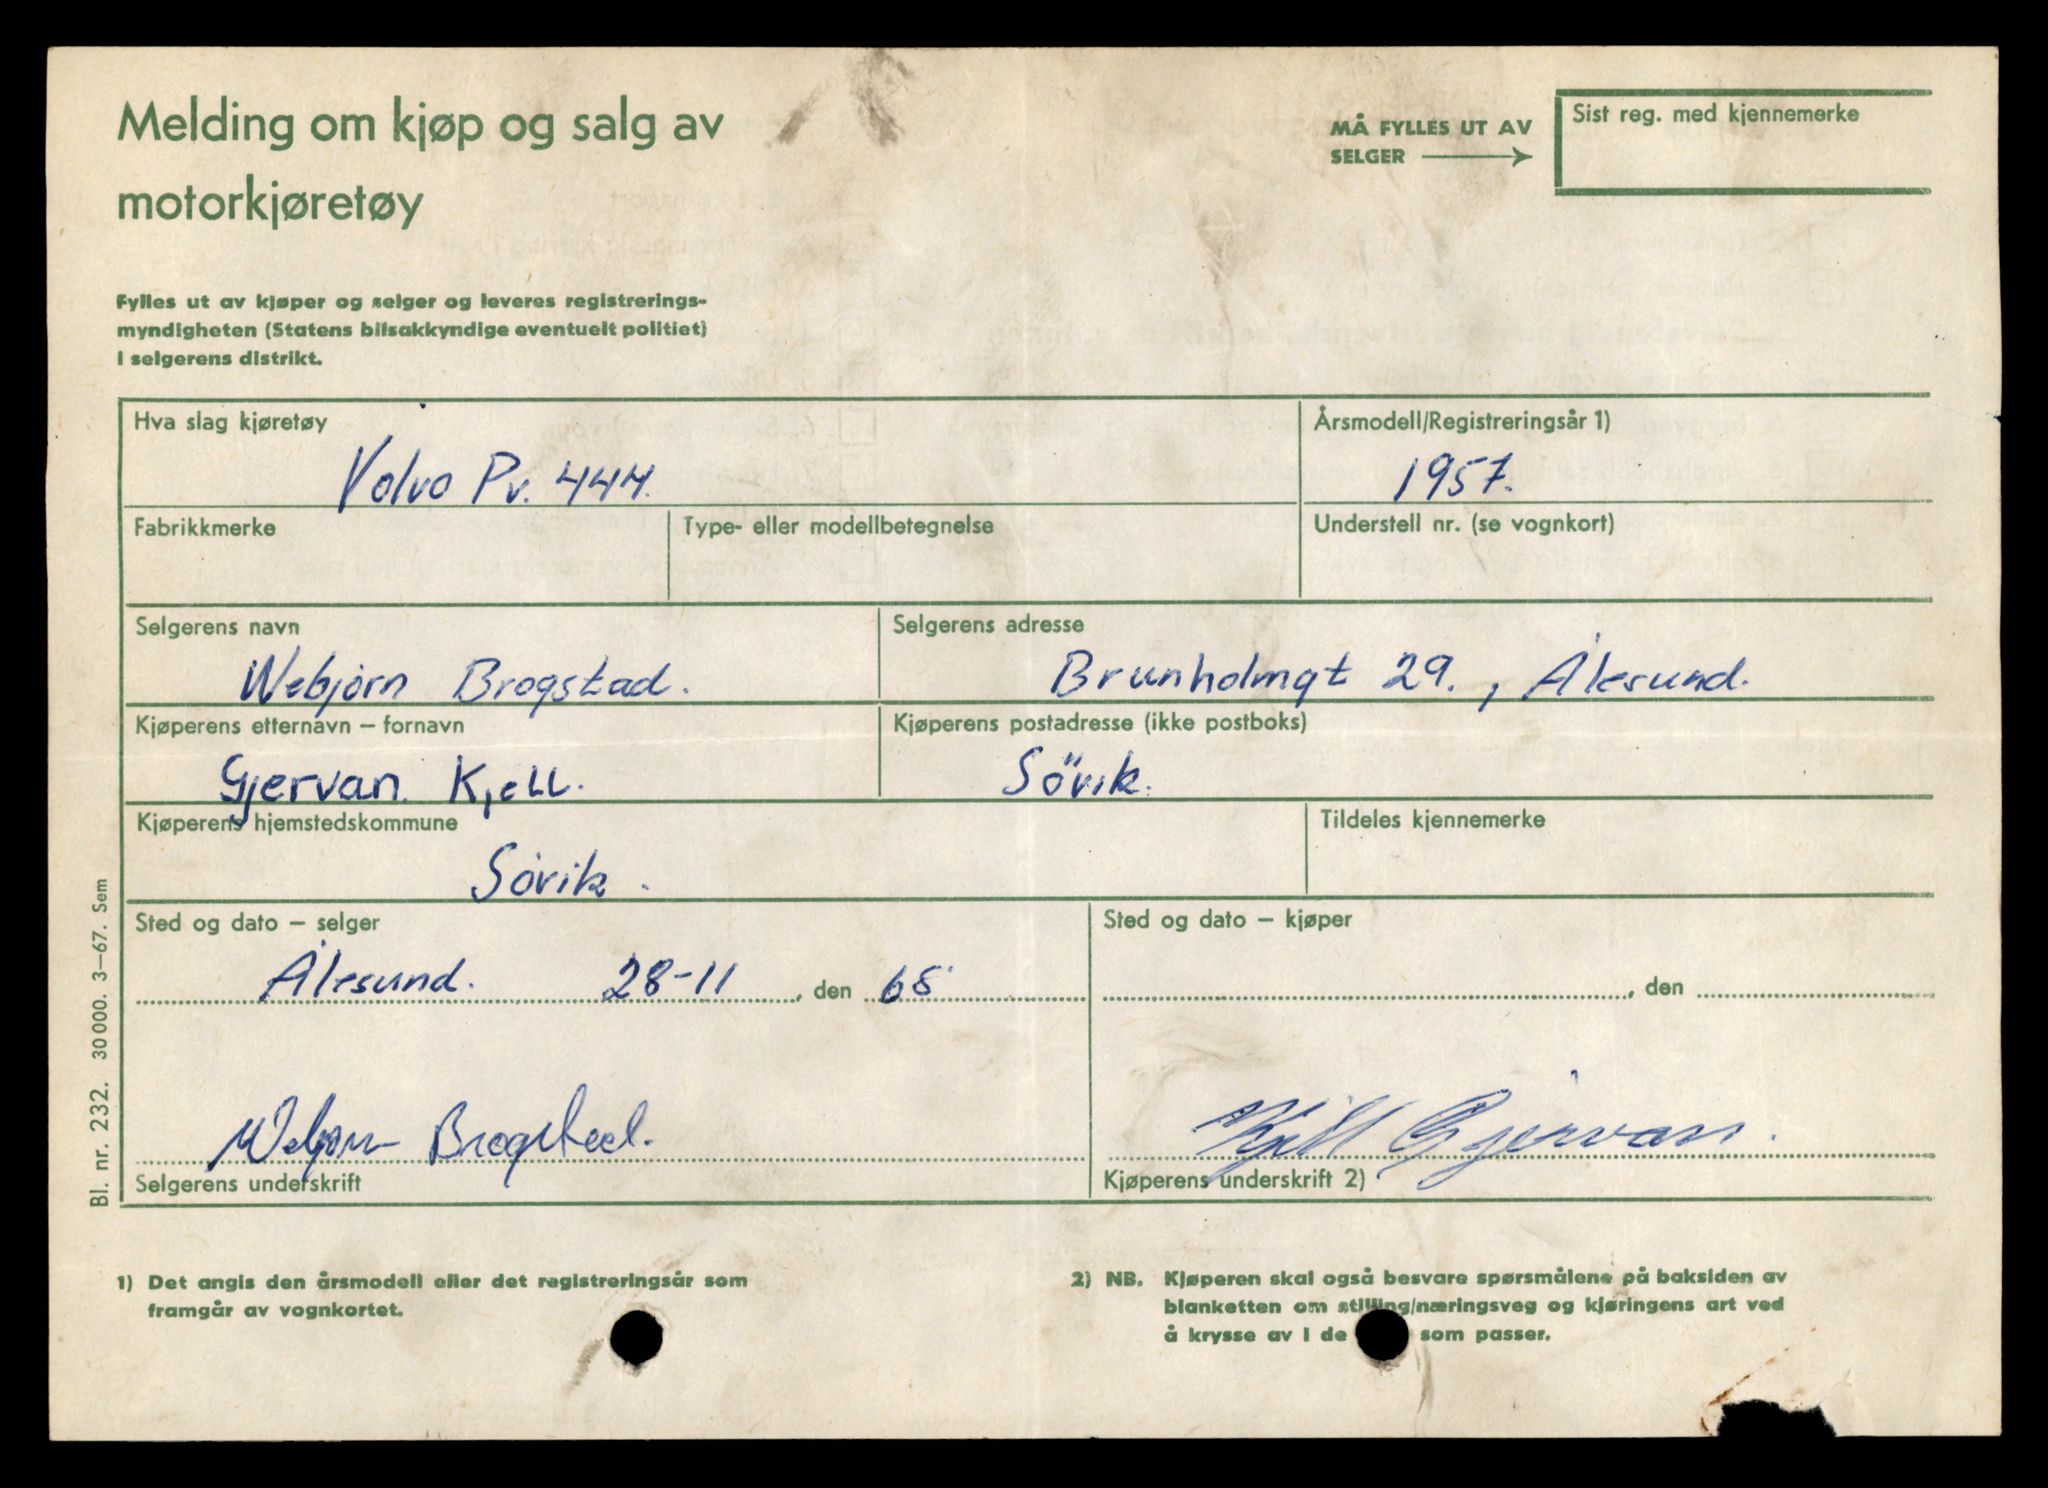 Melding om kjøp og salg av
motorkjøretøy
MÅ FYLLES UT AV
SELGER
Sist reg. med kjennemerke
Fylles ut av kjøper og selger og leveres registrerings-
myndigheten (Statens bilsakkyndige eventuelt politiet)
i selgerens distrikt.
Hva slag kjøretøy
Årsmodell/Registreringsår 1)
Volvo Pv. 444.
1957.
Fabrikkmerke
Type- eller modellbetegnelse
Understell nr. (se vognkort)
Selgerens navn
Selgerens adresse
Webjørn Brogstad.
Brunholmgt 29., Ålesund.
Kjøperens etternavn – fornavn
Kjøperens postadresse (ikke postboks)
Gjervan. Kjell.
Sövik.
Kjøperens hjemstedskommune
Tildeles kjennemerke
Søvik.
Sted og dato – selger
Sted og dato – kjøper
Ålesund. 28-11, den 68
, den
Webjørn Brogstad.
Kjell Gjervan.
Selgerens underskrift
Kjøperens underskrift 2)
1) Det angis den årsmodell eller det registreringsår som
framgår av vognkortet.
2) NB. Kjøperen skal også besvare spørsmålene på baksiden av
blanketten om stilling/næringsveg og kjøringens art ved
å krysse av i de som passer.
Bl. nr. 232. 30 000. 3–67. Sem